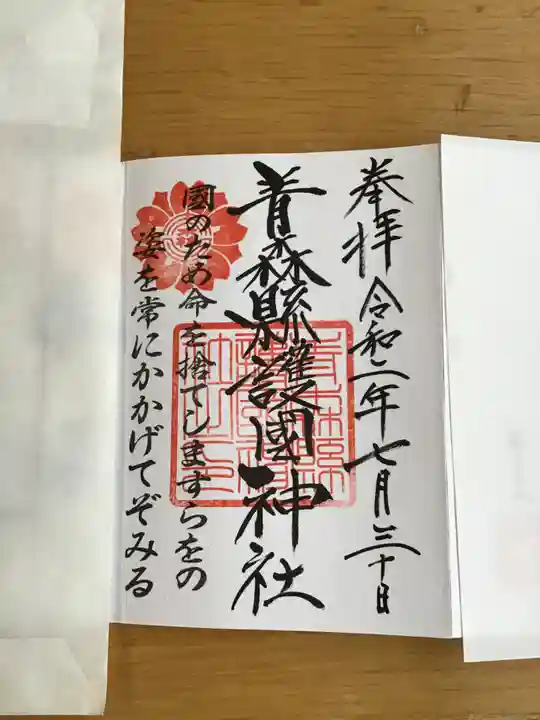 奉拝 令和二年七月三十日
青森縣護國神社
國のため命を捨てしますらをの
姿を常にかかげてぞみる